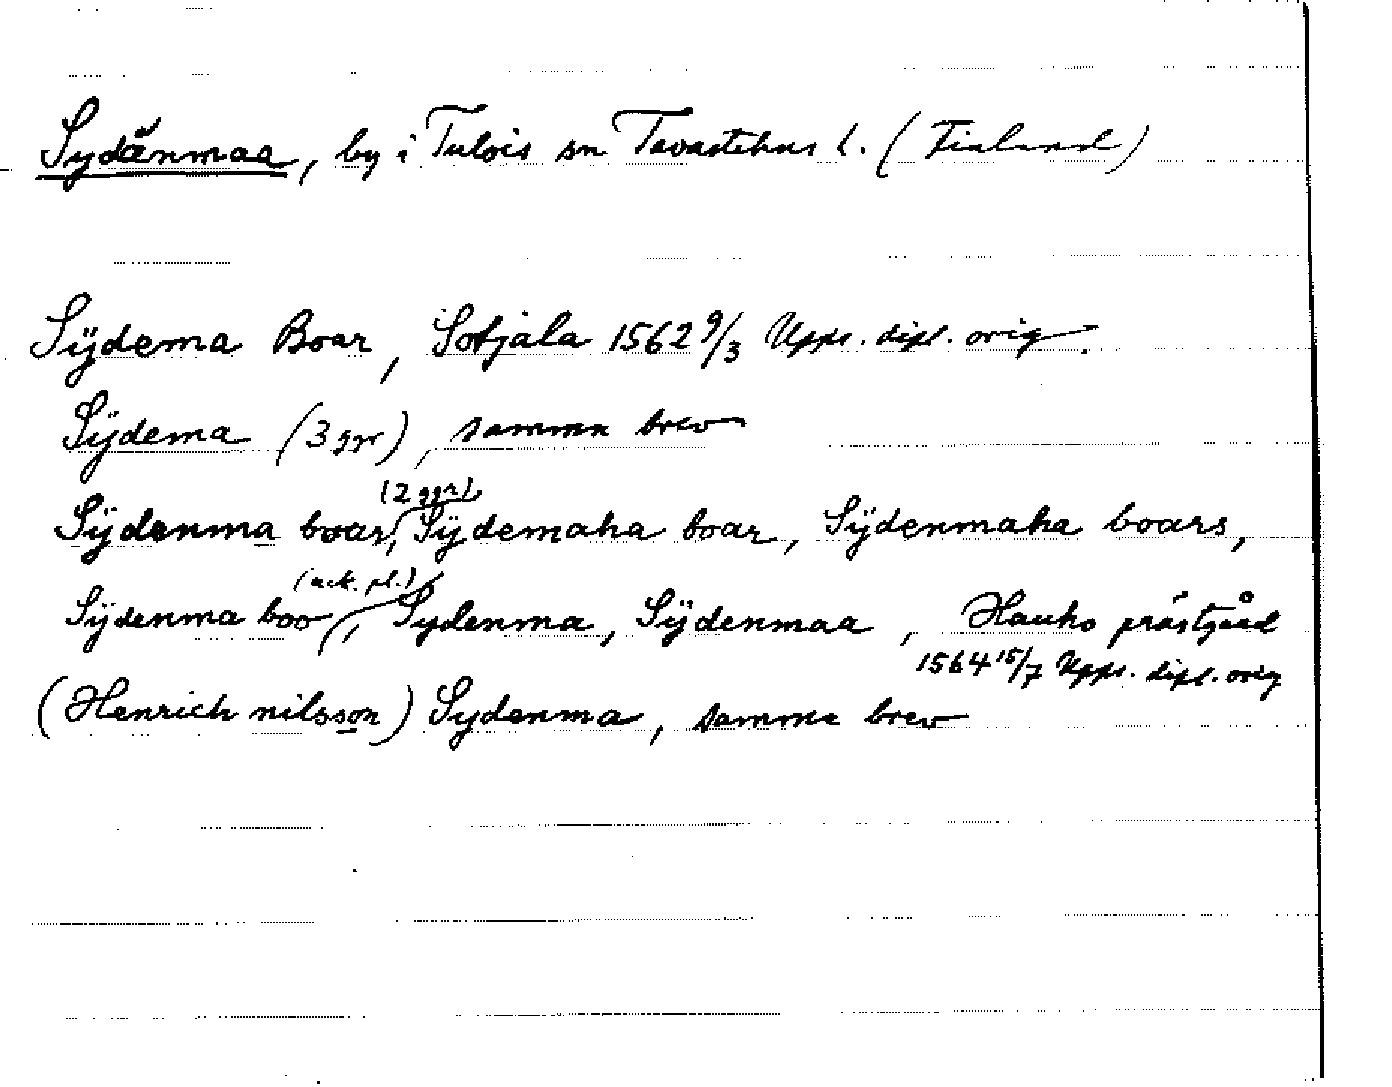 Sydänmaa, by i Tulois sn Tavastehus l. (Finland)
Sÿdema Boar, Sotjala 1562 9/3 Upps. dipl. orig.
Sÿdema (3 ggr), samma brev
(2 ggr)
Sÿdenma boar, Sÿdemaha boar, Sÿdenmaha boars,
(ack. pl.)
Sÿdenma boo, Sydenma, Sÿdenmaa, Hauho prästgård
1564 15/7 Upps. dipl. orig
(Henrich nilsson) Sydenma, samma brev